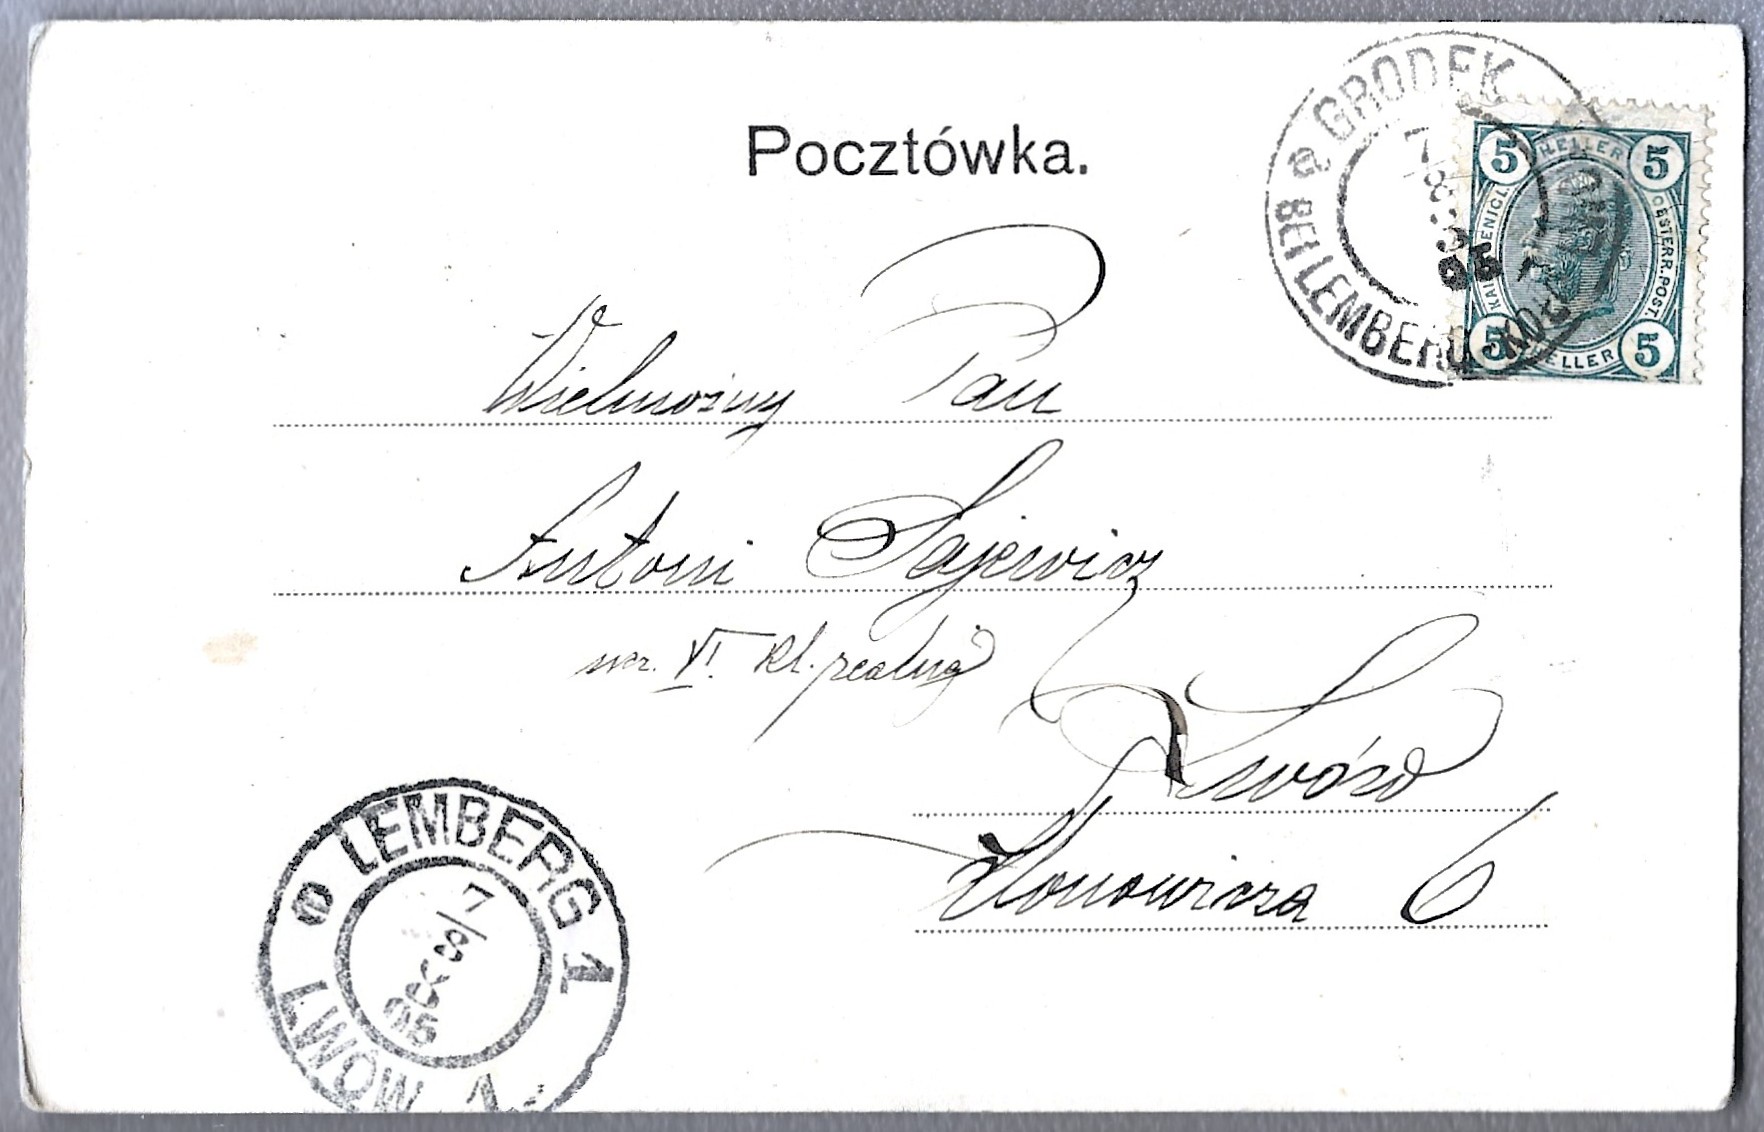 Pocztówka.
GRODEK
BEI LEMBERG
7
8
05
5 HELLER 5
KAIS. KÖNIGL. OESTERR. POST.
5 HELLER 5
Wielmożny Pan
Antoni Sajewicz
ucz. VI. kl. realnej
Lwów
6
LEMBERG 1
7/8
05
LWÓW 1.